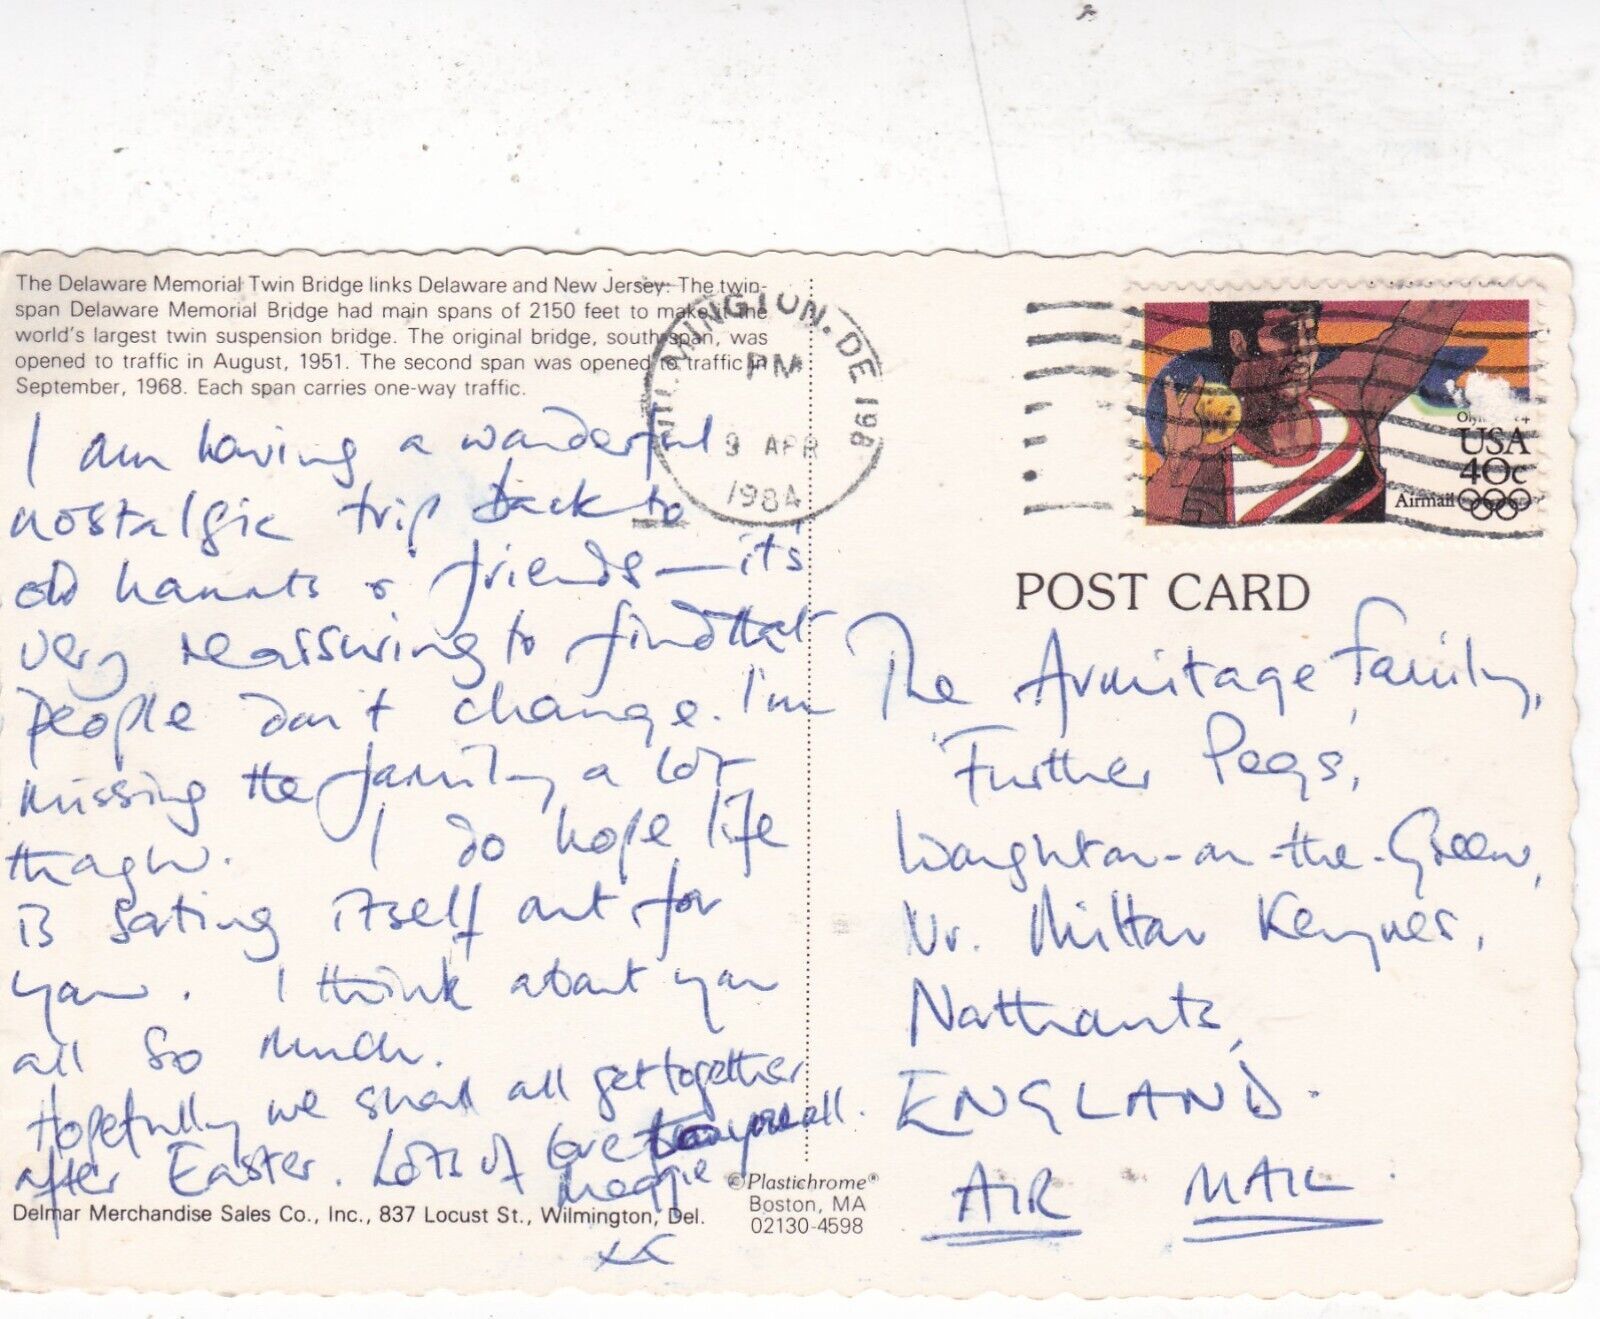 The Delaware Memorial Twin Bridge links Delaware and New Jersey: The twin-
span Delaware Memorial Bridge had main spans of 2150 feet to make it the
world's largest twin suspension bridge. The original bridge, south span, was
opened to traffic in August, 1951. The second span was opened to traffic in
September, 1968. Each span carries one-way traffic.
I am having a wonderful
nostalgic trip back to
old haunts & friends — it's
very reassuring to find that
people don't change. I'm
missing the family a lot
though. I do hope life
is sorting itself out for
you. I think about you
all so much.
Hopefully we shall all get together
after Easter. Lots of love to you all.
Maggie
xx
Delmar Merchandise Sales Co., Inc., 837 Locust St., Wilmington, Del.
©Plastichrome®
Boston, MA
02130-4598
WILMINGTON, DE 198
PM
9 APR
1984
USA
40c
Airmail
POST CARD
The Armitage Family,
Further Pegs,
-on-the-Green,
Nr. Milton Keynes,
Northants,
ENGLAND.
AIR MAIL.